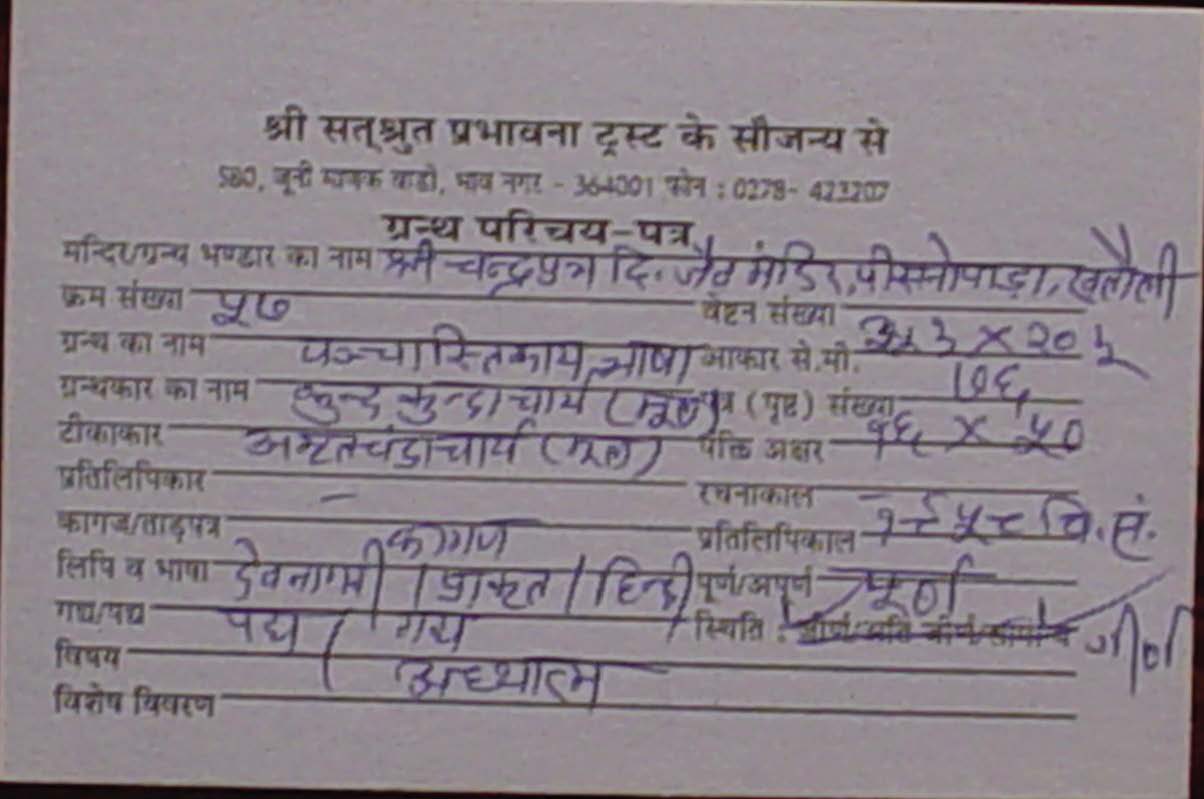 श्री सत्श्रुत प्रभावना ट्रस्ट के सौजन्य से
580, जूनी माणेक वाडी, भाव नगर - 364001 फोन : 0278- 423207
ग्रन्थ परिचय-पत्र
मन्दिर/ग्रन्थ भण्डार का नाम श्री चन्द्रप्रभ दि. जैन मंदिर,
क्रम संख्या ५७ वेष्टन संख्या
ग्रन्थ का नाम पञ्चास्तिकाय भाषा आकार से.मी. X २०
ग्रन्थकार का नाम कुन्दकुन्दाचार्य (मूल) पत्र (पृष्ट) संख्या ७६
टीकाकार अमृतचंद्राचार्य (मूल) पंक्ति अक्षर १६ X ५०
प्रतिलिपिकार – रचनाकाल –
कागज/ताड़पत्र कागज प्रतिलिपिकाल वि. सं.
लिपि व भाषा देवनागरी / प्राकृत / हिन्दी पूर्ण/अपूर्ण पूर्ण
गद्य/पद्य पद्य / गद्य स्थिति : जीर्ण
विषय अध्यात्म
विशेष विवरण